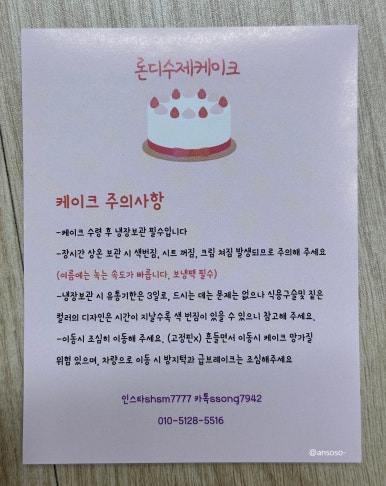 론디수제케이크
케이크 주의사항
-케이크 수령 후 냉장보관 필수입니다
-장시간 상온 보관 시 색번짐, 시트 꺼짐, 크림 쳐짐 발생되므로 주의해 주세요
(여름에는 녹는 속도가 빠릅니다. 보냉팩 필수)
-냉장보관 시 유통기한은 3일로, 드시는 데는 문제는 없으나 식용구슬및 짙은
컬러의 디자인은 시간이 지날수록 색 번짐이 있을 수 있으니 참고해 주세요.
-이동시 조심히 이동해 주세요. (고정핀x) 흔들면서 이동시 케이크 망가질
위험 있으며, 차량으로 이동 시 방지턱과 급브레이크는 조심해주세요
인스타shsm7777 카톡ssong7942
010-5128-5516
@ansoso-